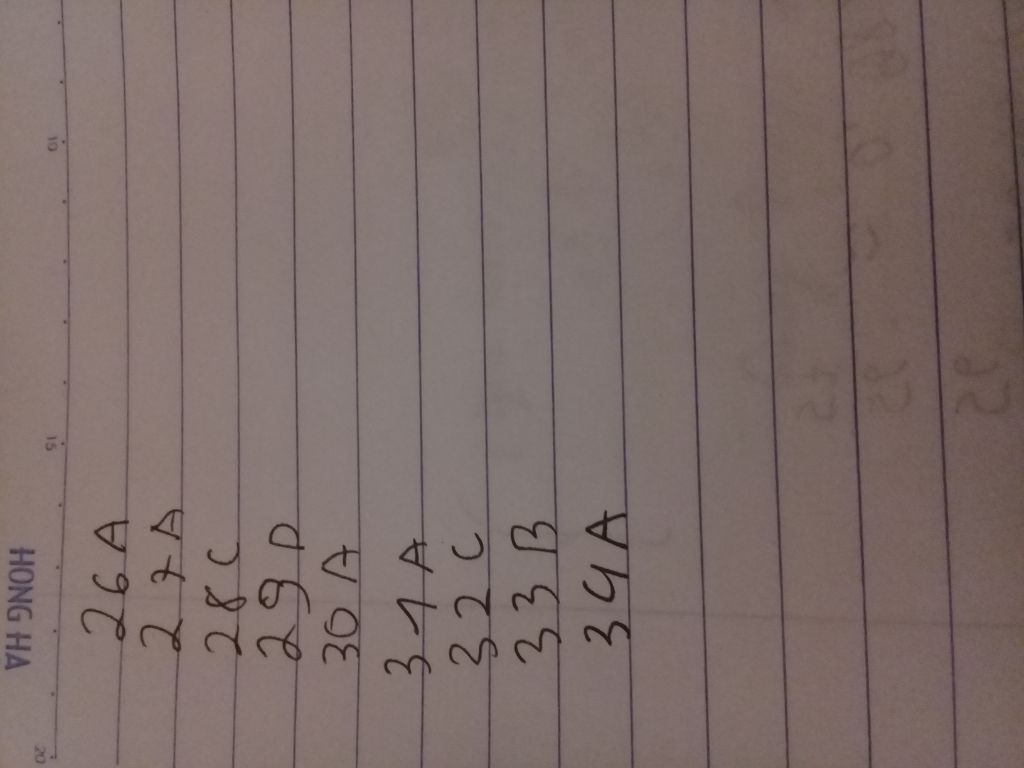 HONG HA
10
15
20
26 A
27 A
28 C
29 D
30 A
31 A
32 C
33 B
34 A